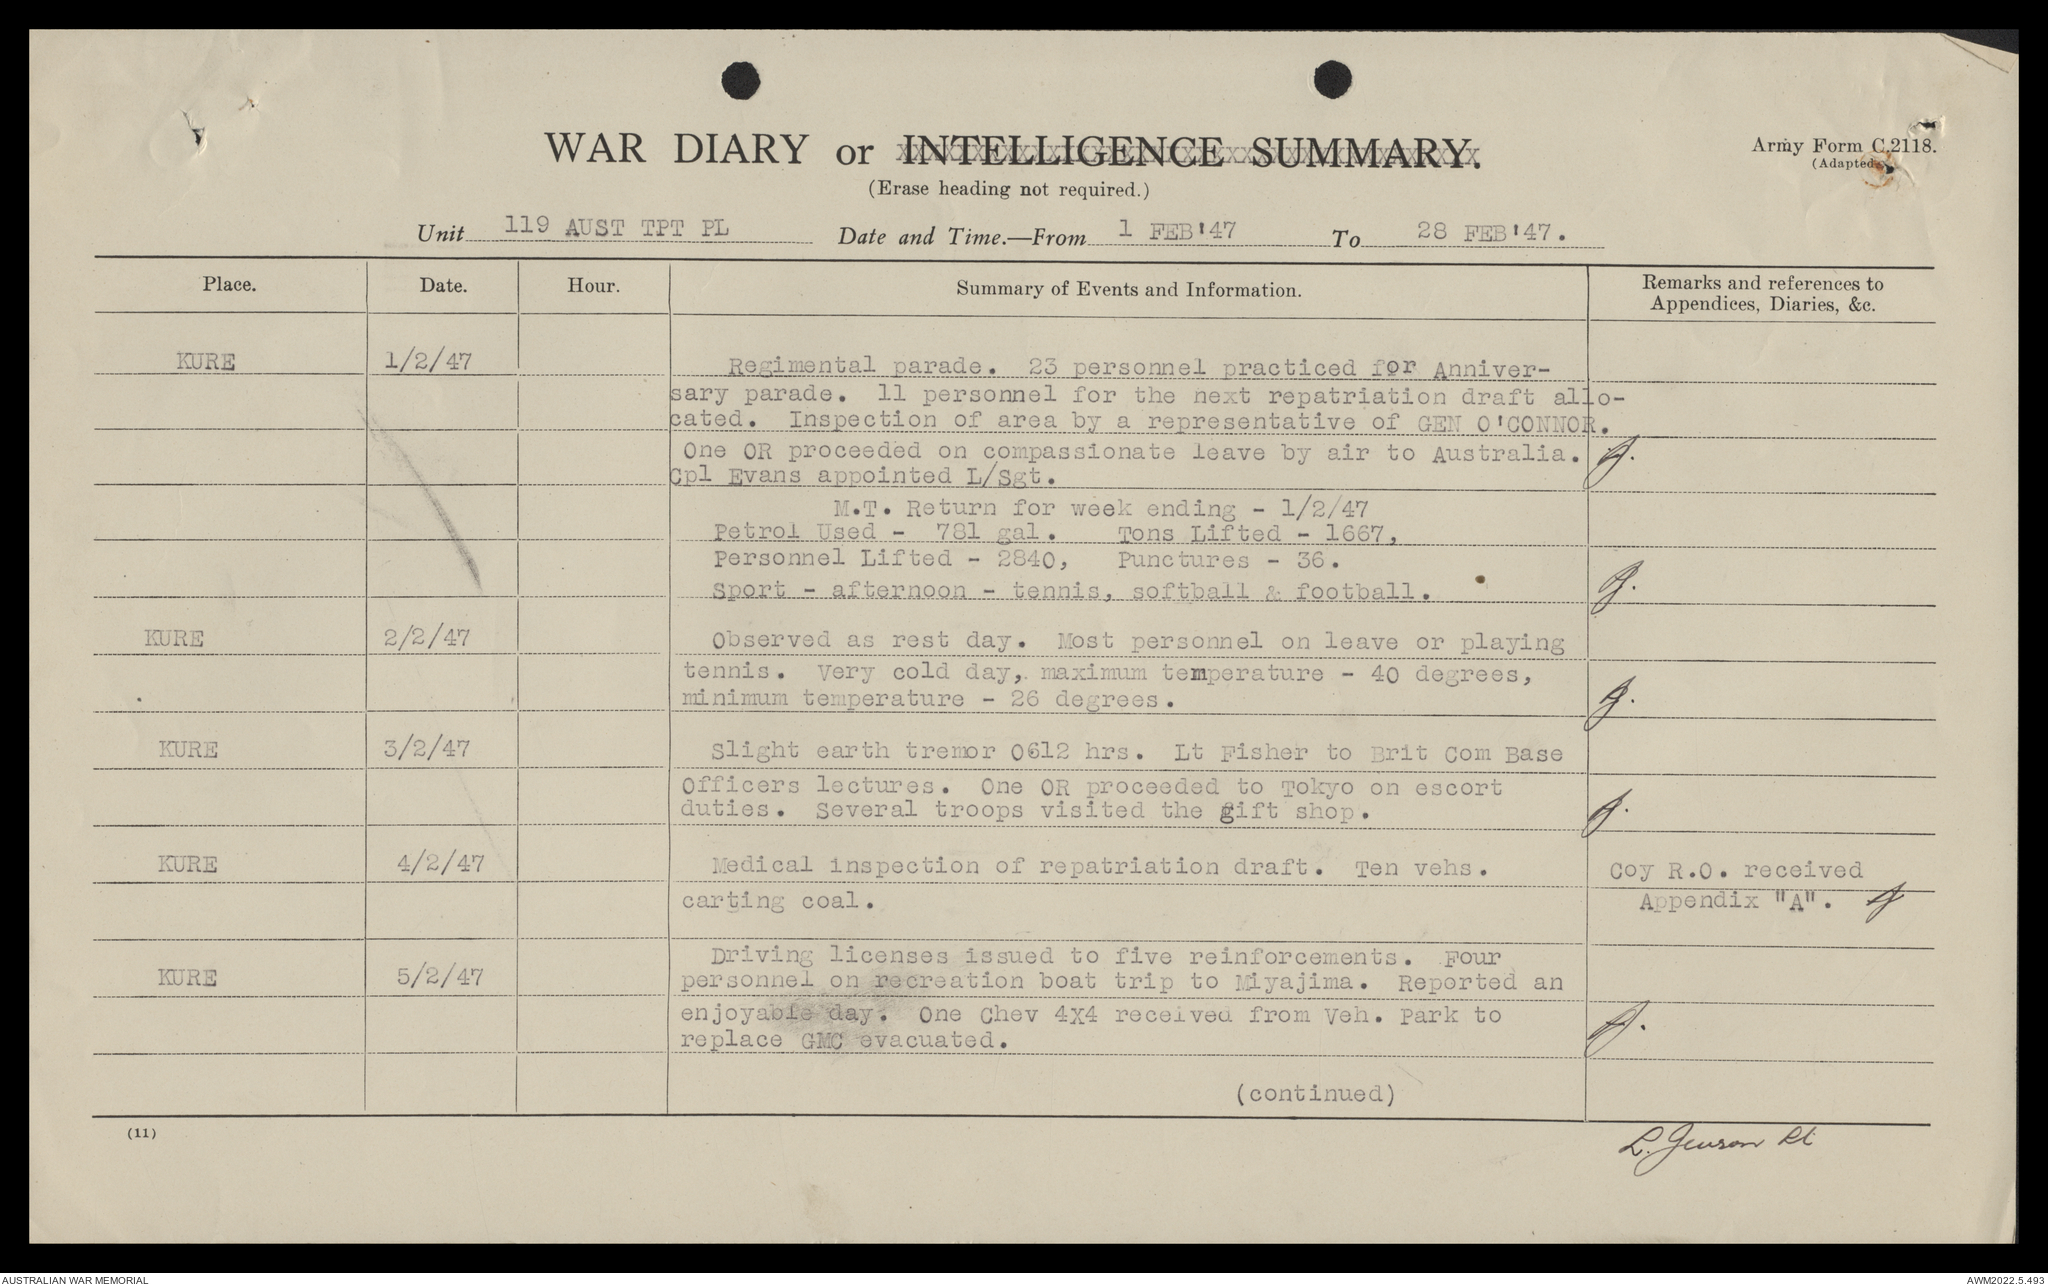 WAR DIARY or INTELLIGENCE SUMMARY.
(Erase heading not required.)
Army Form C.2118.
(Adapted
Unit 119 AUST TPT PL Date and Time.—From 1 FEB'47 To 28 FEB'47.
Place. Date. Hour. Summary of Events and Information. Remarks and references to
Appendices, Diaries, &c.
KURE 1/2/47 Regimental parade. 23 personnel practiced for Anniver-
sary parade. 11 personnel for the next repatriation draft allo-
cated. Inspection of area by a representative of GEN O'CONNOR.
One OR proceeded on compassionate leave by air to Australia.
Cpl Evans appointed L/Sgt.
M.T. Return for week ending - 1/2/47
Petrol Used - 781 gal. Tons Lifted - 1667,
Personnel Lifted - 2840, Punctures - 36.
Sport - afternoon - tennis, softball & football.
KURE 2/2/47 Observed as rest day. Most personnel on leave or playing
tennis. Very cold day, maximum temperature - 40 degrees,
minimum temperature - 26 degrees.
KURE 3/2/47 Slight earth tremor 0612 hrs. Lt Fisher to Brit Com Base
Officers lectures. One OR proceeded to Tokyo on escort
duties. Several troops visited the gift shop.
KURE 4/2/47 Medical inspection of repatriation draft. Ten vehs. Coy R.O. received
carting coal. Appendix "A".
Driving licenses issued to five reinforcements. Four
KURE 5/2/47 personnel on recreation boat trip to Miyajima. Reported an
enjoyable day. One Chev 4X4 received from Veh. Park to
replace GMC evacuated.
(continued)
(11)
AUSTRALIAN WAR MEMORIAL
AWM2022.5.493